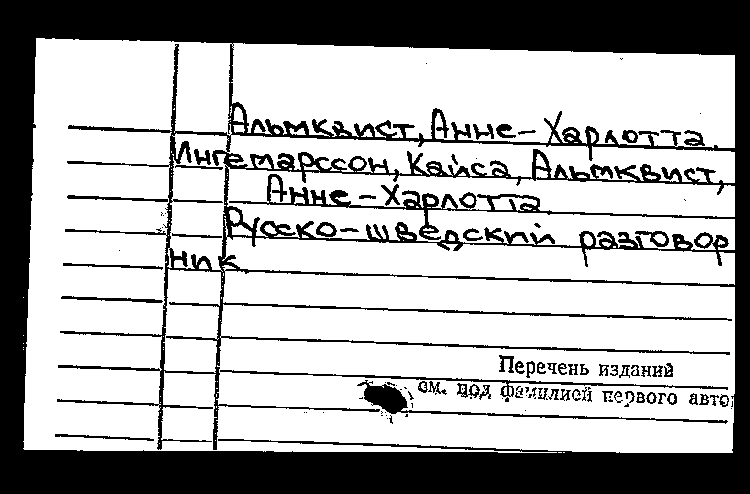 Альмквист, Анне-Харлотта.
Ингемарссон, Кайса, Альмквист,
Анне-Харлотта.
Русско-шведский разговор
ник.
Перечень изданий
см. под фамилией первого авто